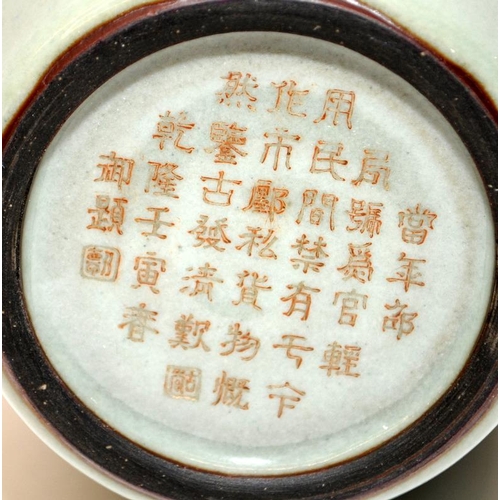 當年邵
局號爲官輕
用民間禁有干今
作市鄽私貨物慨
然鑒古發清歎
乾隆壬寅春
御題